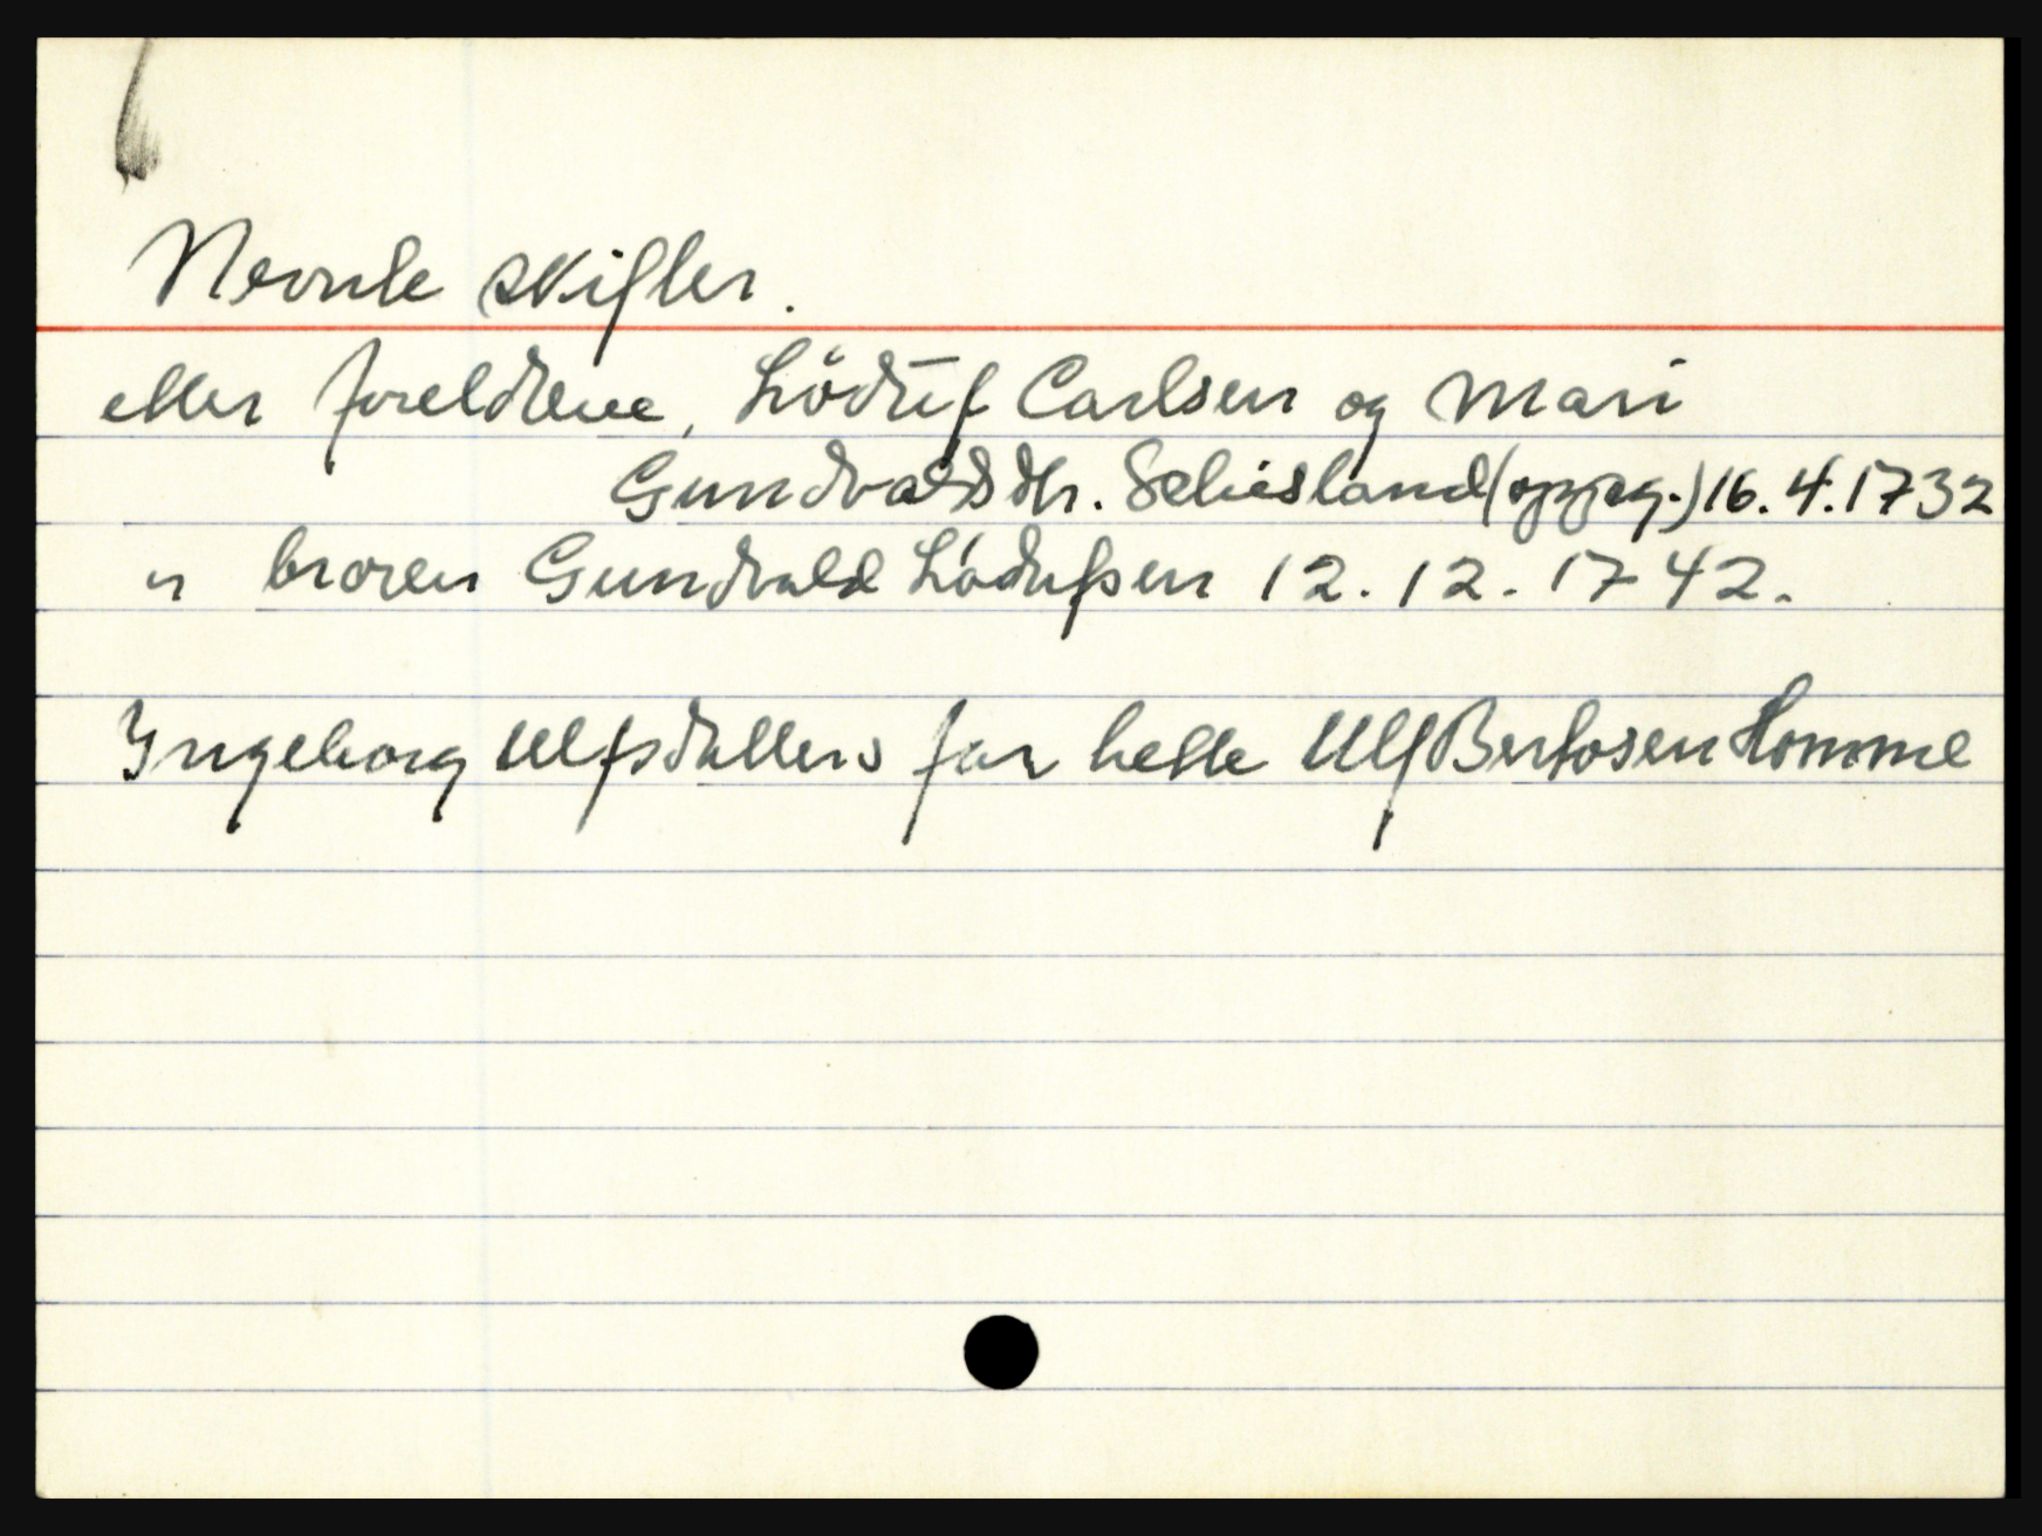 Nevnte skifter.
etter foreldrene, Lödulf Carlsen og Mari
Gundvaldsdtr. Schiesland (oppteg.) 16.4.1732
" broren Gundvald Lödufsen 12.12.1742.
Ingeborg Ulfsdatters far hette Ulf Bertosen Homme